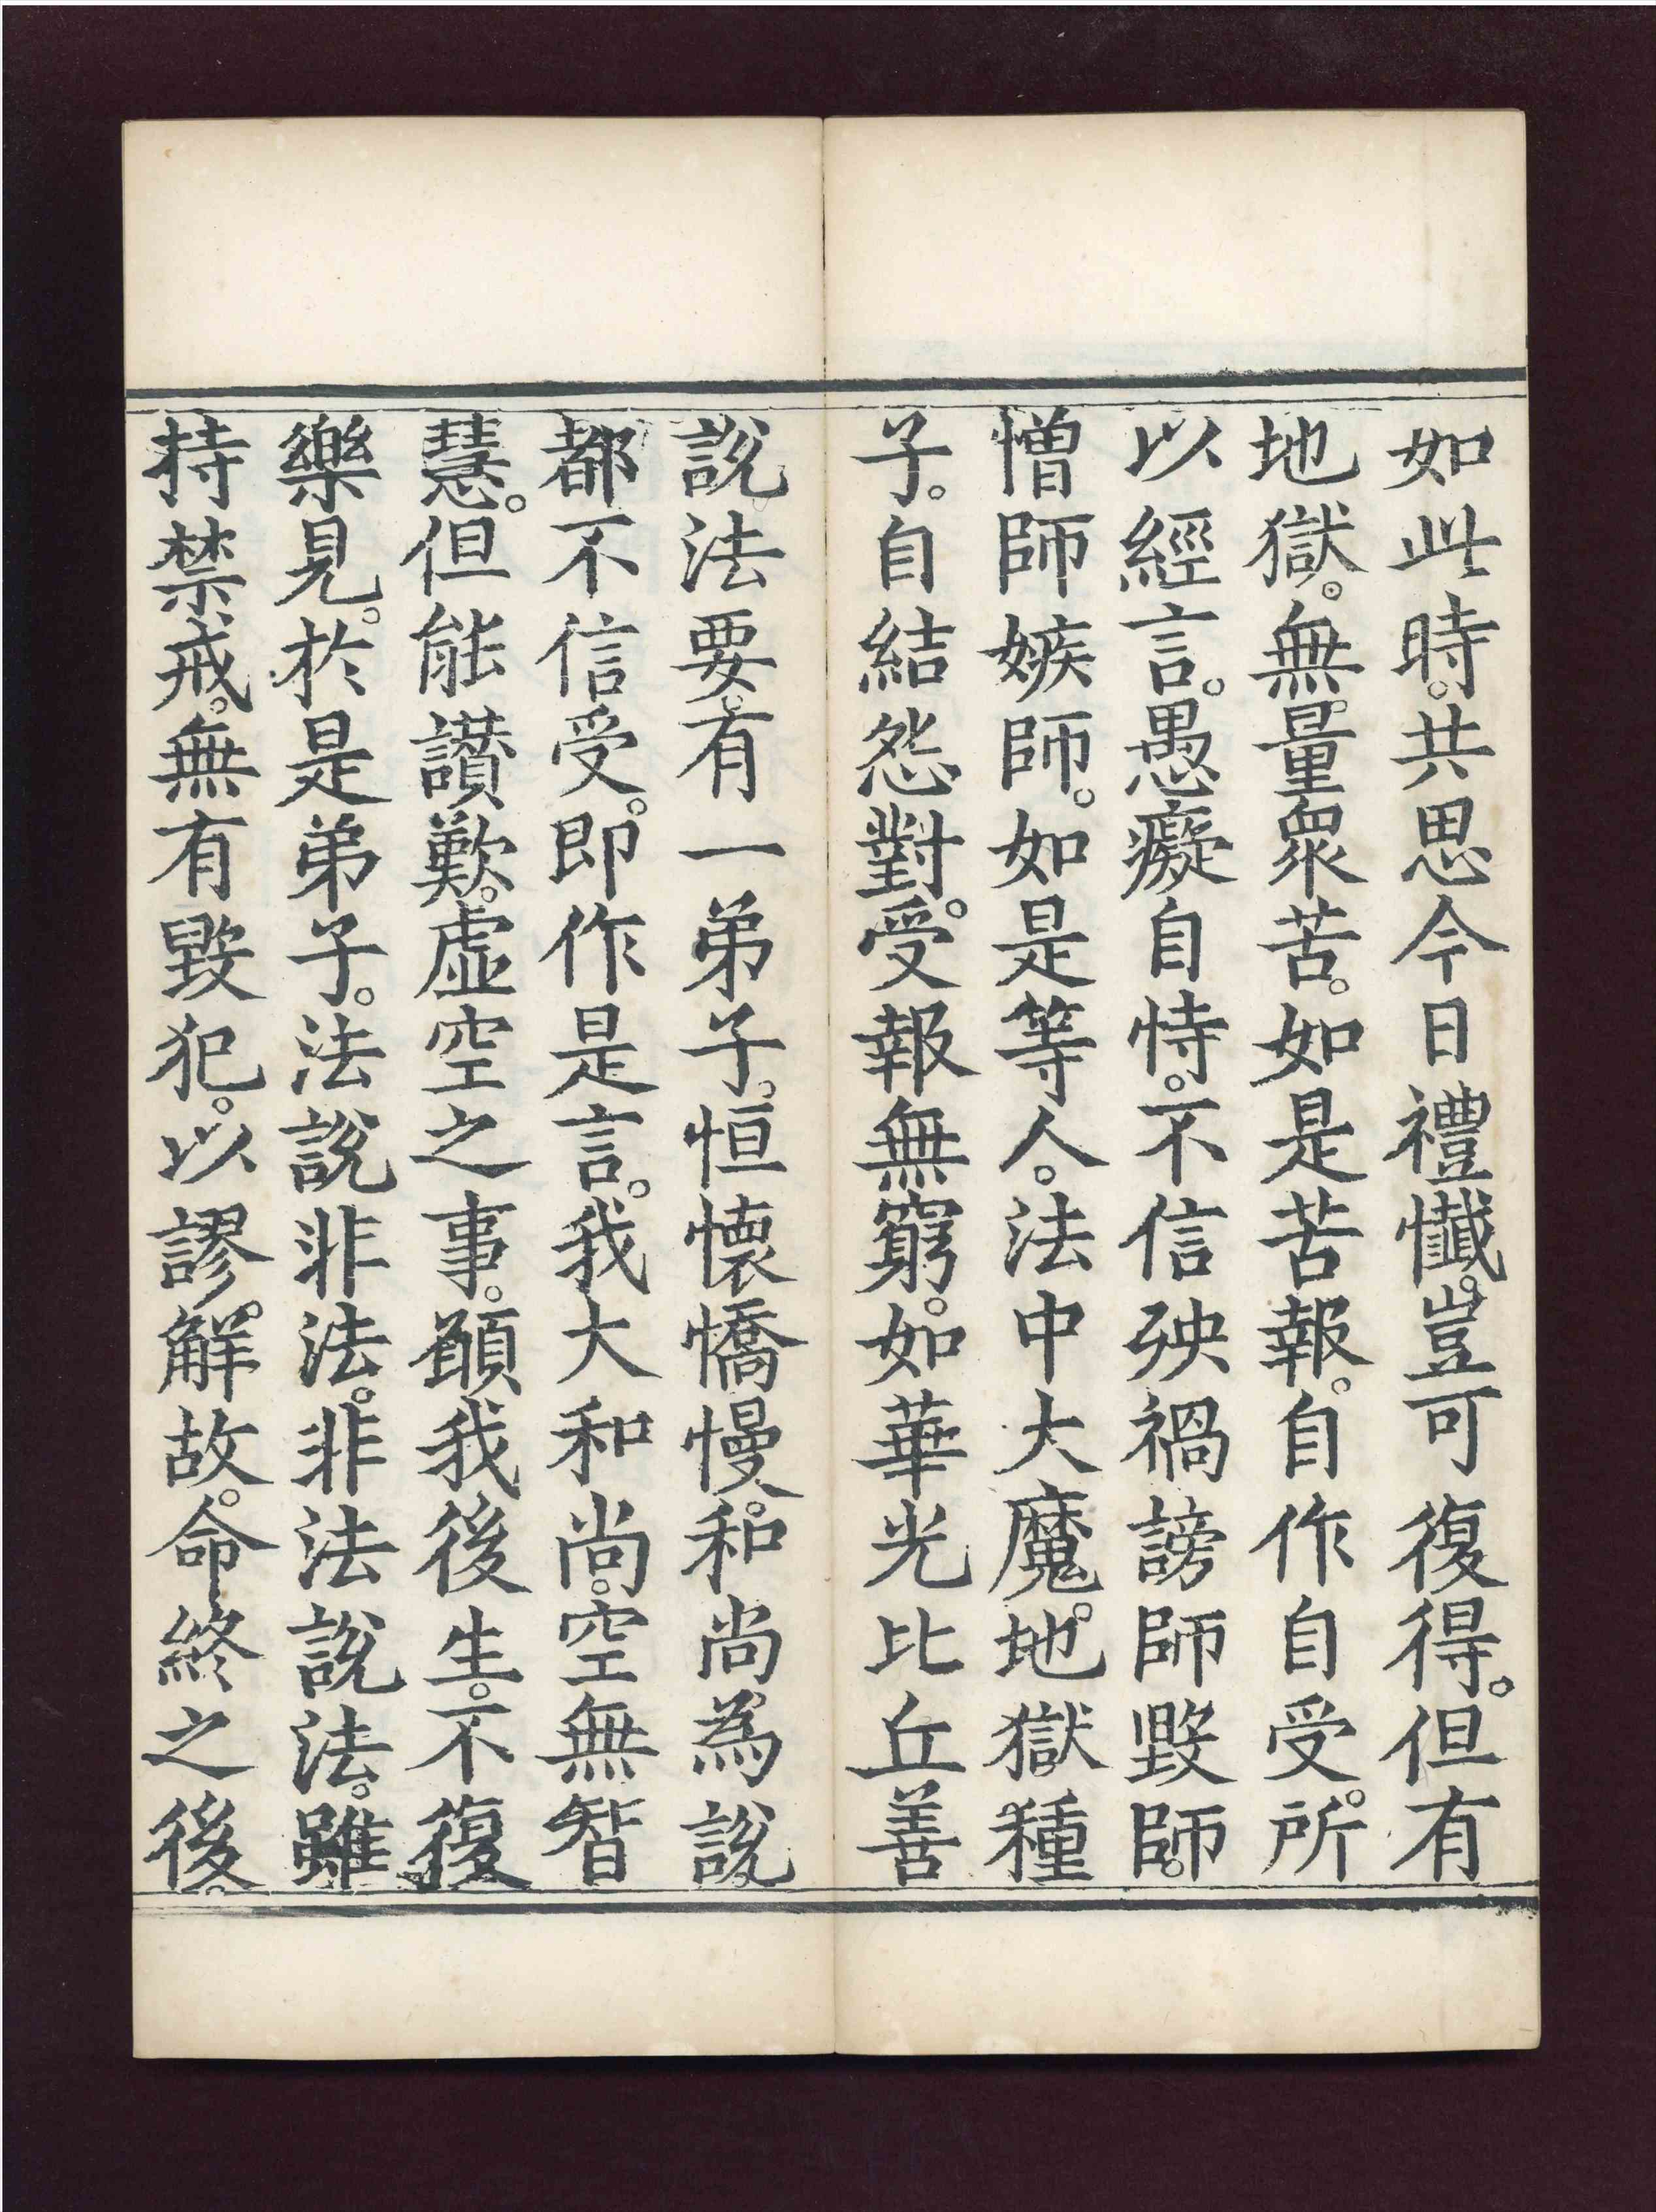 如此時。共思今日禮懺。豈可復得。但有
地獄。無量衆苦。如是苦報。自作自受。所
以經言。愚癡自恃。不信殃禍謗師毀師。
憎師嫉師。如是等人。法中大魔。地獄種
子。自結怨對。受報無窮。如華光比丘善
說法要。有一弟子。恒懷憍慢。和尚為說
都不信受。即作是言。我大和尚。空無智
慧。但能讃歎。虛空之事。願我後生。不復
樂見。於是弟子。法說非法。非法說法。雖
持禁戒。無有毀犯。以謬解故。命終之後。